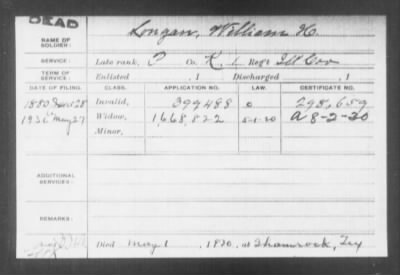 DEAD
NAME OF SOLDIER: Longan, William H.
SERVICE: Late rank, P Co. K, 1 Reg't Ill Cav
TERM OF SERVICE: Enlisted , 1 Discharged , 1
DATE OF FILING. CLASS. APPLICATION NO. LAW. CERTIFICATE NO.
1880 28 Invalid, 399488 0 298,659
May 27 Widow, 1,668,822 5-1-20 A 8-2-30
Minor,
ADDITIONAL SERVICES:
REMARKS:
Died May 1, 1930, at Shamrock, Tex